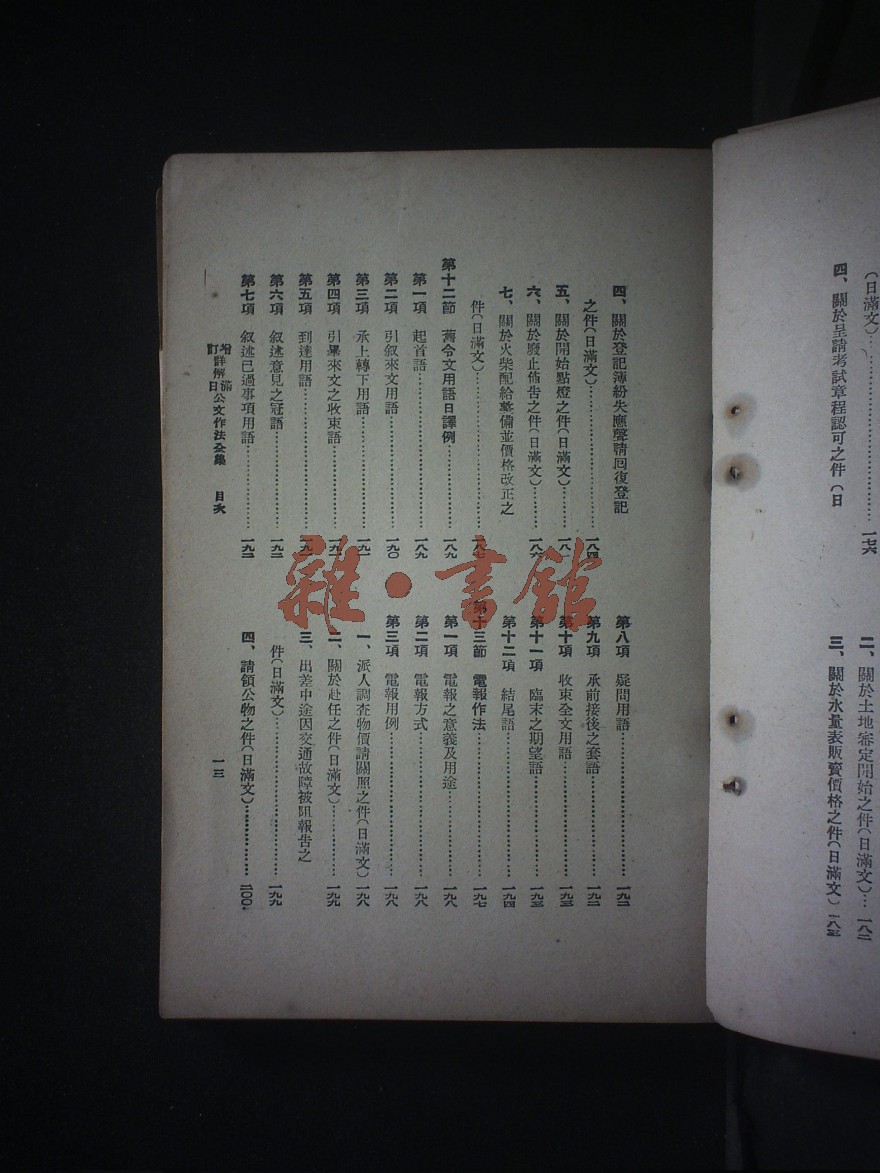 （日滿文）……………………一七六
四、關於呈請考試章程認可之件（日
二、關於土地審定開始之件（日滿文）…一八二
三、關於水量表販賣價格之件（日滿文）一八三
四、關於登記簿紛失應聲請回復登記
之件（日滿文）……………………一八四
五、關於開始點燈之件（日滿文）………一八
六、關於廢止佈告之件（日滿文）………一八六
七、關於火柴配給整備並價格改正之
件（日滿文）……………………一八七
第十二節　舊令文用語日譯例…………一八九
第一項　起首語……………………一八九
第二項　引叙來文用語………………一九〇
第三項　承上轉下用語………………一九一
第四項　引畢來文之收束語…………一九
第五項　到達用語……………………一九
第六項　叙述意見之冠語……………一九二
第七項　叙述已過事項用語…………一九二
第八項　疑問用語……………………一九二
第九項　承前接後之套語……………一九二
第十項　收束全文用語………………一九三
第十一項　臨末之期望語……………一九三
第十二項　結尾語……………………一九四
第十三節　電報作法…………………一九七
第一項　電報之意義及用途…………一九八
第二項　電報方式……………………一九八
第三項　電報用例……………………一九八
一、派人調查物價請關照之件（日滿文）一九八
二、關於赴任之件（日滿文）…………一九九
三、出差中途因交通故障被阻報告之
件（日滿文）……………………一九九
四、請領公物之件（日滿文）…………二〇〇
增訂詳解日滿公文作法全集　目次　一三
雜·書館